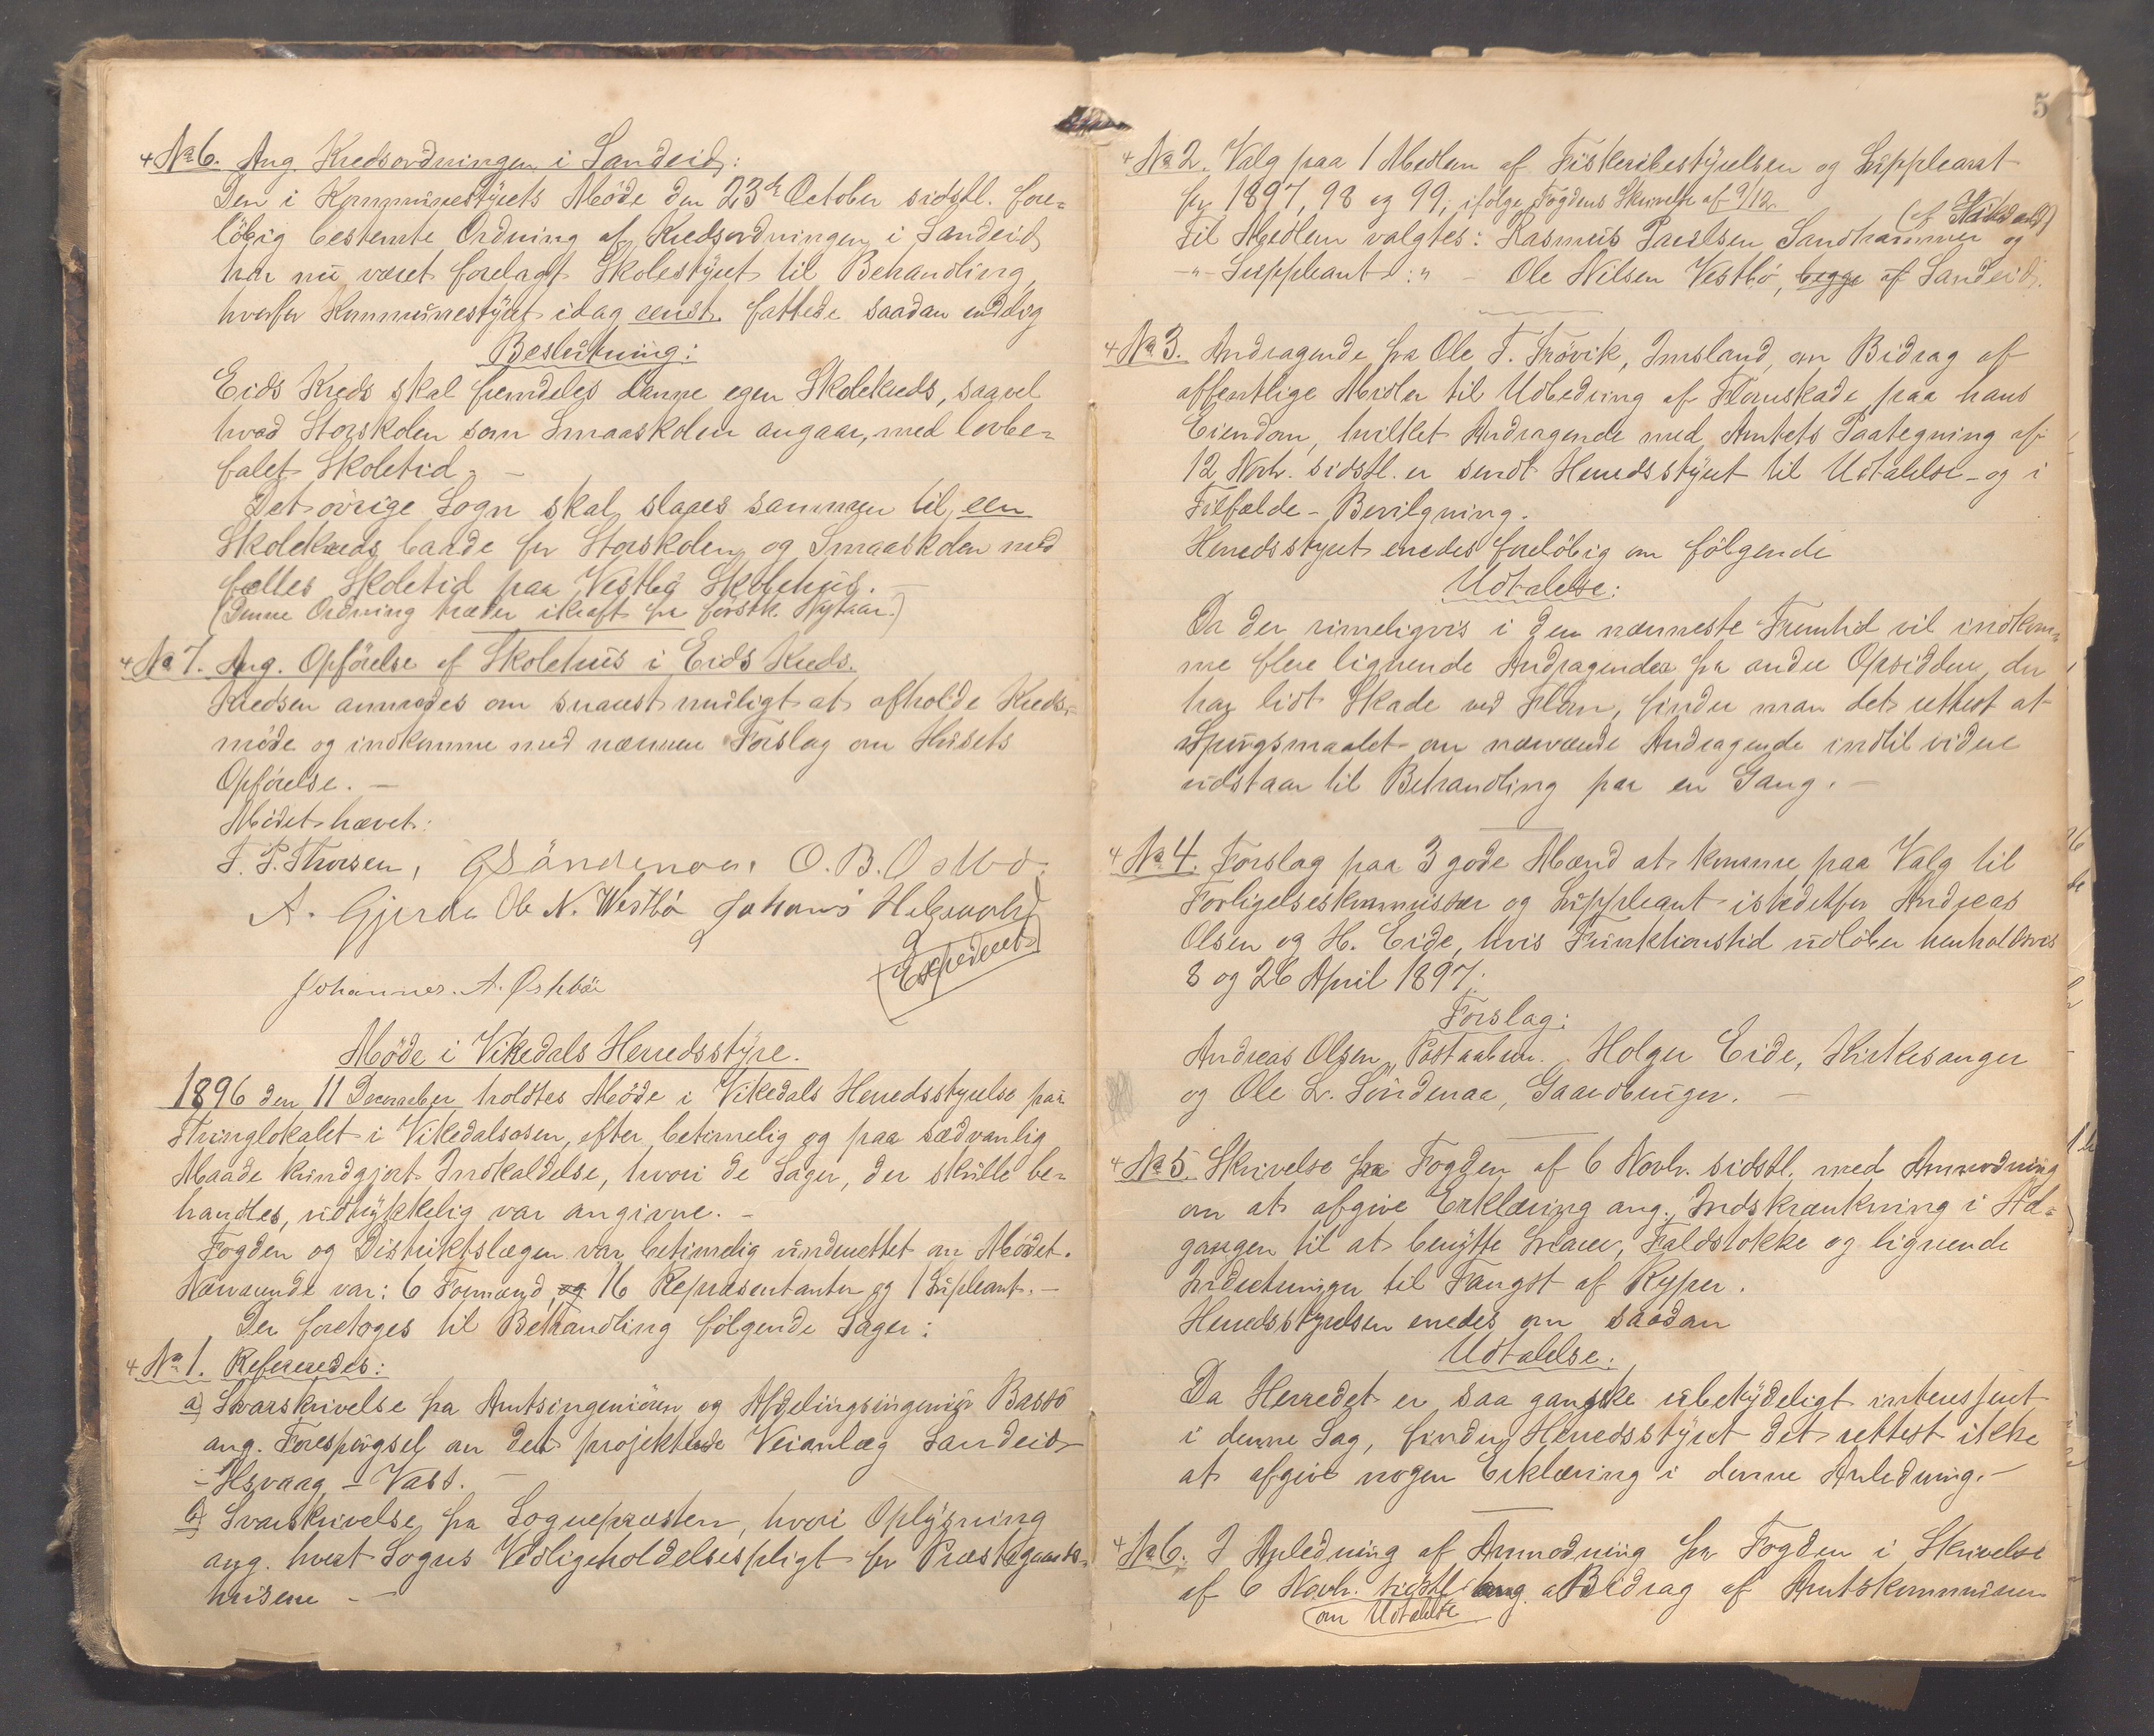 No 6. Ang. Kredsordningen i Sandeid:
Den i Kommunestyrets Møde den 23de October sidstl. fore-
løbig bestemte Ordning af Kredsordningen i Sandeid
har nu været forelagt Skolestyret til Behandling,
hvorfor Kommunestyret idag eenst. fattede saadan endelig
Beslutning:
Eids Kreds skal fremdeles danne egen Skolekreds, saavel
hvad Storskolen som Smaaskolen angaar, med lovbe-
falet Skoletid. —
Det øvrige Sogn skal slaaes sammen til een
Skolekreds baade for Storskolen og Smaaskolen med
fælles Skoletid paa Vestbø Skolehus. —
(Denne Ordning træder ikraft fra førstk. Nytaar.)
No 7. Ang. Opførelse af Skolehus i Eids Kreds.
Kredsen anmodes om snarest muligt at afholde Kreds-
møde og indkomme med nærmere Forslag om Husets
Opførelse. —
Mødet hævet:
T. P. Thorsen, O. B. Østbø.
A. Gjerde Ole N. Westbø Johans
(Expederet)
Johannes. A. Østbø
Møde i Vikedals Herredsstyre.
1896 den 11 December holdtes Møde i Vikedals Herredsstyrelse paa
Thinglokalet i Vikedalsosen, efter betimelig og paa sædvanlig
Maade kundgjort Indkaldelse, hvori de Sager, der skulle be-
handles, udtrykkelig var angivne. —
Fogden og Distriktslægen var betimelig underrettet om Mødet.
Nærværende var: 6 Formænd, og 16 Repræsentanter og 1 Supleant. —
Der foretoges til Behandling følgende Sager:
No 1. Refereredes:
a) Svarskrivelse fra Amtsingeniøren og Afdelingsingeniør Bassø
ang. Forespørgsel om det projekterede Veianlæg Sandeid
- Ilsvaag - Vats. —
b) Svarskrivelse fra Sognepræsten, hvori Oplysning
ang. hvert Sogns Vedligeholdelsespligt for Præstegaards-
husene —
5
No 2. Valg paa 1 Medlem af Fiskeribestyrelsen og Suppleant
for 1897, 98 og 99, ifølge Fogdens Skrivelse af 9/12.
Til Medlem valgtes: Rasmus Paulsen Sandhammer og
-"- Suppleant: " - Ole Nilsen Vestbø, begge af Sandeid.
No 3. Andragende fra Ole T. Frøvik, Imsland, om Bidrag af
offentlige Midler til Udbedring af Flomskade paa hans
Eiendom, hvilket Andragende med Amtets Paategning af
12 Novb. sidstl. er sendt Herredsstyret til Udtalelse - og i
Tilfælde - Bevilgning.
Herredsstyret enedes foreløbig om følgende
Udtalelse:
Da der rimeligvis i den nærmeste Fremtid vil indkom-
me flere lignende Andragender fra andre Opsiddere, der
har lidt Skade ved Flom, finder man det rettest at
Spørgsmaalet om nærværende Andragende indtil videre
udstaar til Behandling paa en Gang. —
No 4. Forslag paa 3 gode Mænd at komme paa Valg til
Forligelseskommissær og Suppleant istedetfor Andreas
Olsen og H. Eide, hvis Funktionstid udløber henholdsvis
8 og 26 April 1897.
Forslag:
Andreas Olsen, Postaabner. Holger Eide, Kirkesanger
og Ole L. Søndenaa, Gaardbruger. —
No 5. Skrivelse fra Fogden af 6 Novb. sidstl. med Anmodning
om at afgive Erklæring ang. Indskrænkning i Ad-
gangen til at benytte Snarer, Faldstokke og lignende
Indretninger til Fangst af Ryper.
Herredsstyrelsen enedes om saadan
Udtalelse:
Da Herredet er saa ganske ubetydeligt interesseret
i denne Sag, finder Herredsstyret det rettest ikke
at afgive nogen Erklæring i denne Anledning. —
No 6. I Anledning af Anmodning fra Fogden i Skrivelse
af 6 Novb. sidstl. ang. Bidrag af Amtskommunen
om Udtalelse